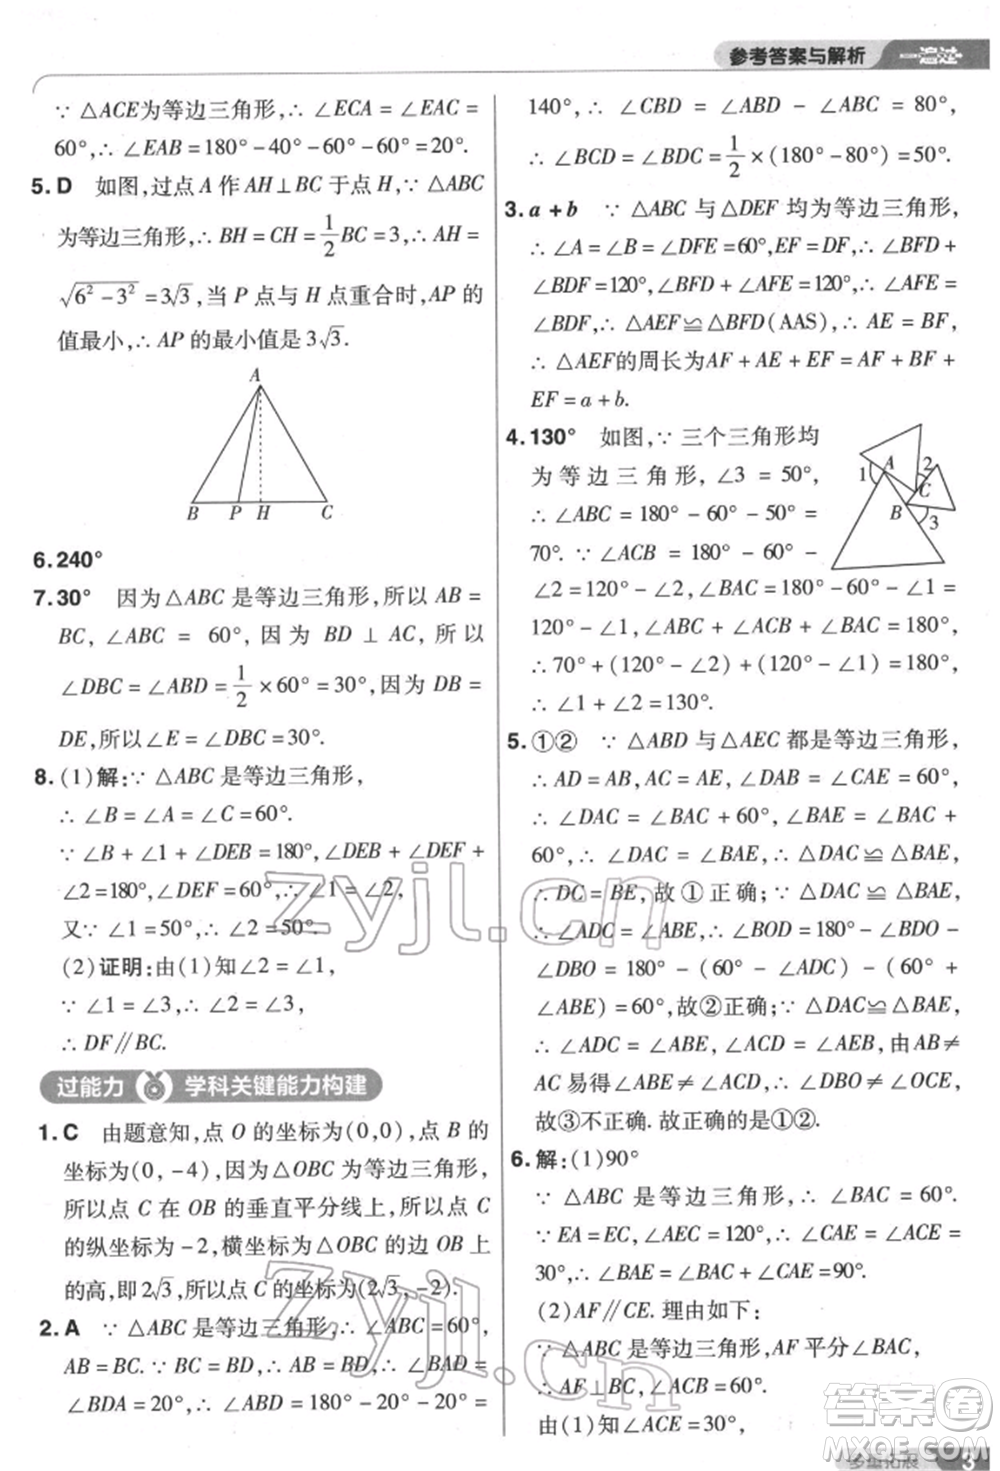 参考答案与解析 一遍过
∵ △ACE为等边三角形,∴ ∠ECA = ∠EAC =
60°,∴ ∠EAB = 180° - 40° - 60° - 60° = 20°.
5. D 如图,过点 A 作 AH⊥BC 于点 H,∵ △ABC
为等边三角形,∴ BH = CH = 1/2 BC = 3,∴ AH =
√(6² - 3²) = 3√3,当 P 点与 H 点重合时,AP 的
值最小,∴ AP 的最小值是 3√3.
A
B P H C
6. 240°
7. 30° 因为△ABC 是等边三角形,所以 AB =
BC, ∠ABC = 60°, 因为 BD ⊥ AC, 所以
∠DBC = ∠ABD = 1/2 × 60° = 30°,因为 DB =
DE,所以∠E = ∠DBC = 30°.
8. (1)解:∵ △ABC 是等边三角形,
∴ ∠B = ∠A = ∠C = 60°.
∵ ∠B + ∠1 + ∠DEB = 180°,∠DEB + ∠DEF +
∠2 = 180°,∠DEF = 60°,∴ ∠1 = ∠2,
又∵ ∠1 = 50°,∴ ∠2 = 50°.
(2)证明:由(1)知∠2 = ∠1,
∵ ∠1 = ∠3,∴ ∠2 = ∠3,
∴ DF∥BC.
过能力 学科关键能力构建
1. C 由题意知,点 O 的坐标为(0,0),点 B 的
坐标为(0, -4),因为△OBC 为等边三角形,
所以点 C 在 OB 的垂直平分线上,所以点 C
的纵坐标为 -2,横坐标为△OBC 的边 OB 上
的高,即 2√3,所以点 C 的坐标为(2√3, -2).
2. A ∵ △ABC 是等边三角形,∴ ∠ABC = 60°,
AB = BC. ∵ BC = BD,∴ AB = BD,∴ ∠BAD =
∠BDA = 20°,∴ ∠ABD = 180° - 20° - 20° =
140°,∴ ∠CBD = ∠ABD - ∠ABC = 80°,
∴ ∠BCD = ∠BDC = 1/2 × (180° - 80°) = 50°.
3. a + b ∵ △ABC 与△DEF 均为等边三角形,
∴ ∠A = ∠B = ∠DFE = 60°,EF = DF,∴ ∠BFD +
∠BDF = 120°,∠BFD + ∠AFE = 120°,∴ ∠AFE =
∠BDF,∴ △AEF≌△BFD(AAS),∴ AE = BF,
∴ △AEF的周长为AF + AE + EF = AF + BF +
EF = a + b.
4. 130° 如图,∵ 三个三角形均
为等边三角形,∠3 = 50°,
∴ ∠ABC = 180° - 60° - 50° =
70°. ∵ ∠ACB = 180° - 60° -
∠2 = 120° - ∠2,∠BAC = 180° - 60° - ∠1 =
120° - ∠1,∠ABC + ∠ACB + ∠BAC = 180°,
∴ 70° + (120° - ∠2) + (120° - ∠1) = 180°,
∴ ∠1 + ∠2 = 130°.
1 A 2 C B 3
5. ①② ∵ △ABD 与△AEC 都是等边三角形,
∴ AD = AB,AC = AE,∠DAB = ∠CAE = 60°,
∴ ∠DAC = ∠BAC + 60°,∠BAE = ∠BAC +
60°,∴ ∠DAC = ∠BAE,∴ △DAC ≌ △BAE,
∴ DC = BE,故①正确;∵ △DAC ≌ △BAE,
∴ ∠ADC = ∠ABE,∴ ∠BOD = 180° - ∠BDO -
∠DBO = 180° - (60° - ∠ADC) - (60° +
∠ABE) = 60°,故②正确;∵ △DAC≌△BAE,
∴ ∠ADC = ∠ABE,∠ACD = ∠AEB,由 AB≠
AC 易得∠ADC≠∠AEB,∴ ∠DBO≠∠OCE,
故③不正确. 故正确的是①②.
6. 解:(1)90°
∵ △ABC 是等边三角形,∴ ∠BAC = 60°.
∵ EA = EC,∠AEC = 120°,∴ ∠CAE = ∠ACE =
30°,∴ ∠BAE = ∠BAC + ∠CAE = 90°.
(2)AF∥CE. 理由如下:
∵ △ABC 是等边三角形,AF 平分∠BAC,
∴ AF⊥BC,∠ACB = 60°.
由(1)知∠ACE = 30°,
多重拓展 3
zyjl.cn
zyjl.cn
答案圈
MXQE.COM